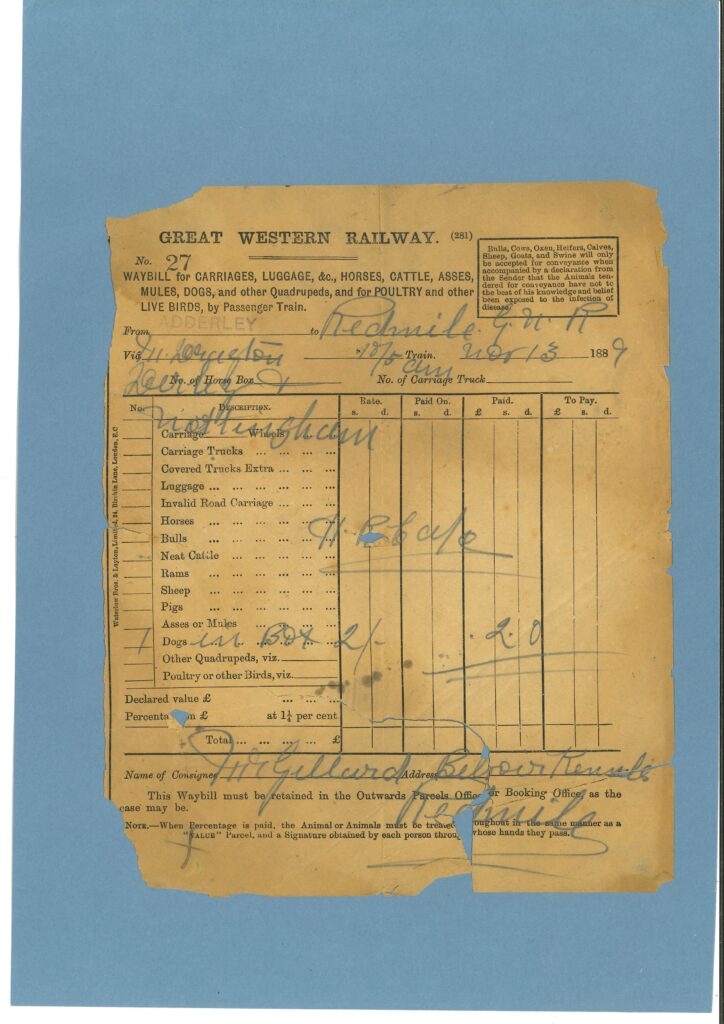 GREAT WESTERN RAILWAY. (281)
Bulls, Cows, Oxen, Heifers, Calves,
Sheep, Goats, and Swine will only
be accepted for conveyance when
accompanied by a declaration from
the Sender that the Animals ten-
dered for conveyance have not to
the best of his knowledge and belief
been exposed to the infection of
disease.
No. 27
WAYBILL for CARRIAGES, LUGGAGE, &c., HORSES, CATTLE, ASSES,
MULES, DOGS, and other Quadrupeds, and for POULTRY and other
LIVE BIRDS, by Passenger Train.
From ADDERLEY to Redmile G.N.R
Via Train. Nov 13 1889
Derby No. of Horse Box No. of Carriage Truck
Nottingham
No. DESCRIPTION. Rate. Paid On. Paid. To Pay.
s. d. s. d. £ s. d. £ s. d.
Carriage Wheels
Carriage Trucks ... ... ... ...
Covered Trucks Extra ... ... ...
Luggage ... ... ... ... ...
Invalid Road Carriage ... ... ...
Horses ... ... ... ... ...
Bulls ... ... ... ... ...
Neat Cattle ... ... ... ...
Rams ... ... ... ... ...
Sheep ... ... ... ... ...
Pigs ... ... ... ... ...
Asses or Mules ... ... ...
1 Dogs in Box 2/- 2.0
Other Quadrupeds, viz.
Poultry or other Birds, viz.
Declared value £ ... ... ...
£ at 1¼ per cent
Total ... ... ... ... £
Name of Consignee Gillard Address Belvoir Kennels
Redmile
This Waybill must be retained in the Outwards Parcels Office or Booking Office, as the
case may be.
NOTE.—When Percentage is paid, the Animal or Animals must be treated throughout in the same manner as a
"VALUE" Parcel, and a Signature obtained by each person through whose hands they pass.
Waterlow Bros. & Layton, Limited, 24, Birchin Lane, London, E.C